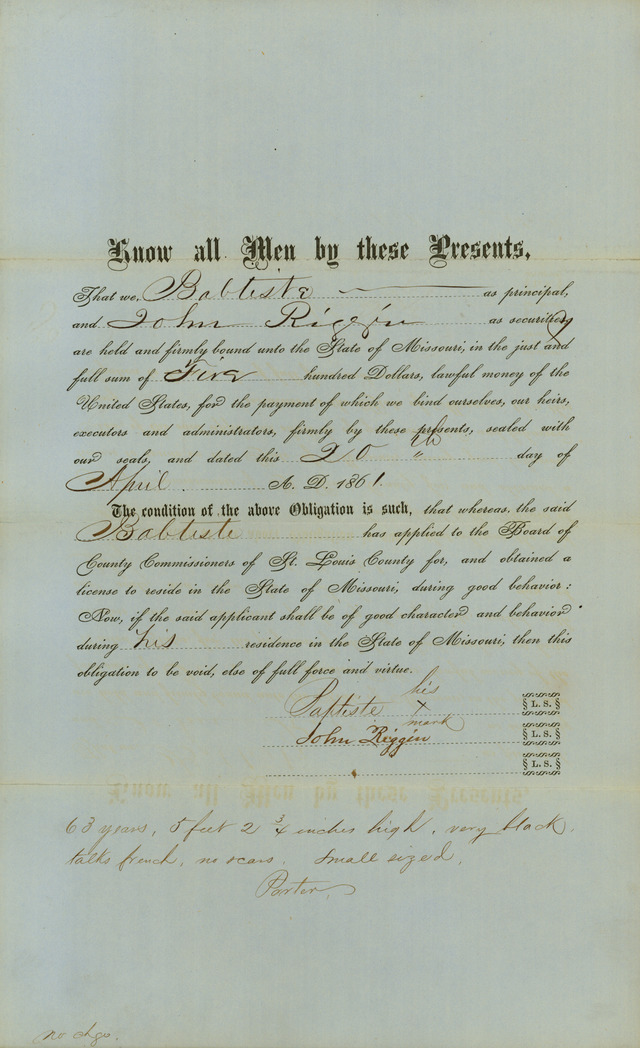 Know all Men by these Presents,
That we, Babtiste as principal,
and John Riggin as security
are held and firmly bound unto the State of Missouri, in the just and
full sum of Five hundred Dollars, lawful money of the
United States, for the payment of which we bind ourselves, our heirs,
executors and administrators, firmly by these presents, sealed with
our seals, and dated this 20th day of
April A. D. 1861.
The condition of the above Obligation is such, that whereas, the said
Babtiste has applied to the Board of
County Commissioners of St. Louis County for, and obtained a
license to reside in the State of Missouri, during good behavior:
Now, if the said applicant shall be of good character and behavior
during his residence in the State of Missouri, then this
obligation to be void, else of full force and virtue.
his
Baptiste X § L. S. §
mark
John Riggin § L. S. §
§ L. S. §
63 years, 5 feet 2 3/4 inches high, very black,
talks french, no scars. Small sized,
Porter,
no chgo.